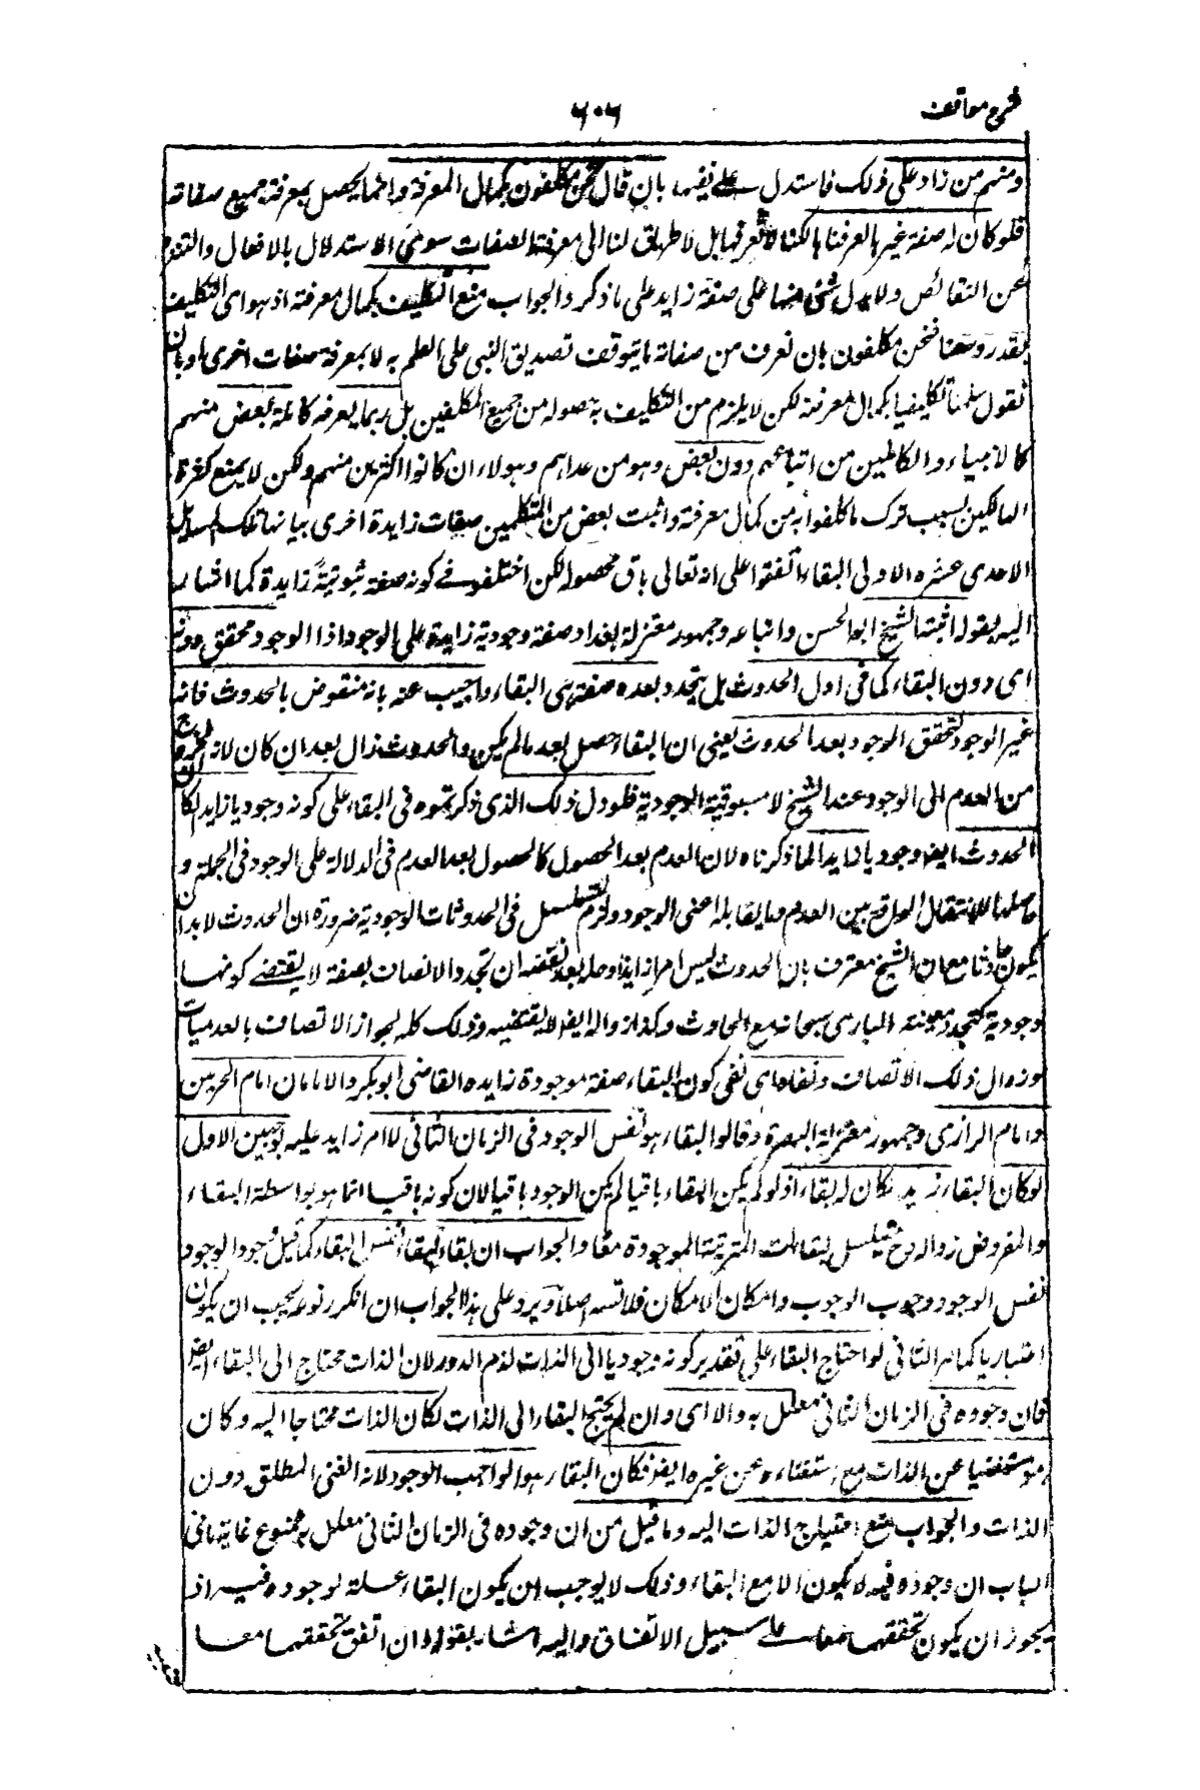 شرح مواقف
٦٠٦
ومنهم من زاد على ذلك فاستدل على نفيها بان قال نحن مكلفون بكمال المعرفة وانما يحصل بمعرفة جميع صفاته
فلو كان له صفة غيرها لعرفناها لكنا لا نعرفها بل لا طريق لنا الى معرفة الصفات سوى الاستدلال بالافعال والتنزه
عن النقائص ولا يدل شئ منها على صفة زايد على ما ذكر والجواب منع التكليف بكمال معرفته اذ هو اى التكليف
بقدر وسعنا فنحن مكلفون بان نعرف من صفاته ما يتوقف تصديق النبى على العلم به لا بمعرفة صفات اخرى او بان
نقول سلمنا تكليفنا بكمال معرفته لكن لا يلزم من التكليف به حصوله من جميع المكلفين بل ربما يعرفه كاملة بعض منهم
كالانبياء والكاملين من اتباعهم دون بعض وهو من عداهم وهولاء ان كانوا اكثرين منهم ولكن لا يمنع كثرة
الهالكين بسبب ترك ما كلفوا به من كمال معرفته واثبت بعض من المتكلمين صفات زايدة اخرى بيانها تلك المسايل
الاحدى عشره الاولى البقاء اتفقوا على انه تعالى باق محصوله لكن اختلفوا فى كونه صفة ثبوتية زايدة كما اشار
اليه بقوله اثبته الشيخ ابو الحسن واتباعه وجمهور معتزلة بغداد صفة وجودية زايدة على الوجود اذا الوجود محقق دونه
اى دون البقاء كما فى اول الحدوث بل يتجدد بعده صفة هى البقاء واجيب عنه بانه منقوض بالحدوث فانه
غير الوجود لتحقق الوجود بعد الحدوث يعنى ان البقاء حصل بعد ما لم يكن والحدوث زال بعد ان كان لانه الخروج
من العدم الى الوجود عند الشيخ لا مسبوقية الوجود به فلو دل ذلك الذى ذكرتموه فى البقاء على كونه وجوديا زايدا لكان
الحدوث ايضا وجوديا زايدا لما ذكرناه لان العدم بعد الحصول كالحصول بعد العدم فى الدلالة على الوجود فى الجملة و
حاصلها الانتقال الواقع بين العدم وما يقابله اعنى الوجود ولزم التسلسل فى الحدوثات الوجودية ضرورة ان الحدوث لابد ان
يكون حادثا مع ان الشيخ معترف بان الحدوث ليس امرا زايدا وحله بعد نقضه ان تجدد الاتصاف بصفة لا يقتضى كونها
وجودية كتجدد معية البارى سبحانه مع الحادث وكذا زواله ايضا لا يقتضيه وذلك كله لجواز الاتصاف بالعدميات
وزوال ذلك الاتصاف ونفاه اى نفى كون البقاء صفة موجودة زايدة القاضى ابو بكر والامامان امام الحرمين
وامام الرازى وجمهور معتزلة البصرة وقالوا البقاء هو نفس الوجود فى الزمان الثانى لا امر زايد عليه بوجهين الاول
لو كان البقاء زايدا لكان له بقاء اذ لو لم يكن البقاء باقيا لم يكن الوجود باقيا لان كونه باقيا انما هو بواسطة البقاء
والمفروض زواله وح تتسلسل البقاءات المترتبة الموجودة معا والجواب ان بقاء البقاء نفس البقاء كما قيل وجود الوجود
نفس الوجود ووجوب الوجوب وامكان الامكان فلا تسه اصلا ويرد على هذا الجواب ان ما تكرر نوعه يجب ان يكون
اعتباريا كما مر الثانى لو احتاج البقاء على تقدير كونه وجوديا الى الذات لزم الدور لان الذات محتاج الى البقاء ايضا
فان وجوده فى الزمان الثانى معلل به والا اى وان لم يحتج البقاء الى الذات لكان الذات محتاجا اليه وكان
هو مستغنيا عن الذات مع استغناءه عن غيره ايضا فكان البقاء هو الواجب الوجود لانه الغنى المطلق دون
الذات والجواب منع احتياج الذات اليه وما قيل من ان وجوده فى الزمان الثانى معلل به ممنوع غاية ما فى
الباب ان وجوده فيه لا يكون الا مع البقاء وذلك لا يوجب ان يكون البقاء علة لوجوده فيه اذ
يجوز ان يكون تحققهما معا على سبيل الاتفاق واليه اشار بقوله وان اتفق تحققهما معا